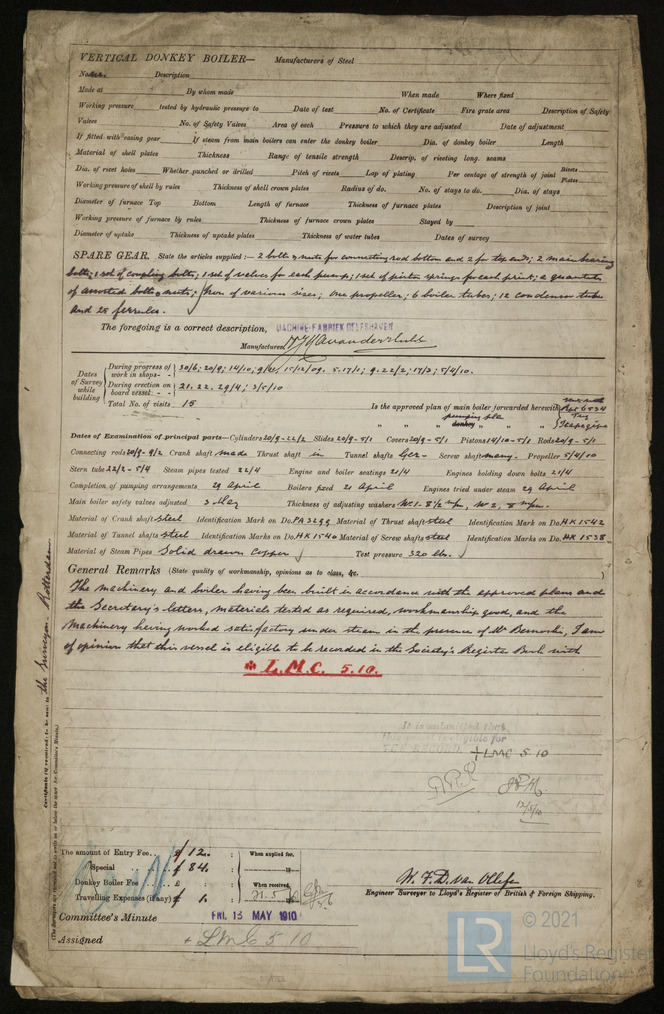 VERTICAL DONKEY BOILER— Manufacturers of Steel
No. Description
Made at By whom made When made Where fixed
Working pressure tested by hydraulic pressure to Date of test No. of Certificate Fire grate area Description of Safety
Valves No. of Safety Valves Area of each Pressure to which they are adjusted Date of adjustment
If fitted with easing gear If steam from main boilers can enter the donkey boiler Dia. of donkey boiler Length
Material of shell plates Thickness Range of tensile strength Descrip. of riveting long. seams
Dia. of rivet holes Whether punched or drilled Pitch of rivets Lap of plating Per centage of strength of joint Rivets
Plates
Working pressure of shell by rules Thickness of shell crown plates Radius of do. No. of stays to do. Dia. of stays
Diameter of furnace Top Bottom Length of furnace Thickness of furnace plates Description of joint
Working pressure of furnace by rules Thickness of furnace crown plates Stayed by
Diameter of uptake Thickness of uptake plates Thickness of water tubes Dates of survey
SPARE GEAR. State the articles supplied:— 2 bolts & nuts for connecting rod bottom and 2 for top ends; 2 main bearing
bolts; 1 set of coupling bolts; 1 set of valves for each pump; 1 set of piston springs for each; a quantity
of assorted bolts & nuts; Iron of various sizes; One propeller; 6 boiler tubes; 12 condenser tubes
and 25 ferrules.
The foregoing is a correct description, MACHINE-FABRIEK DELFSHAVEN
Manufacturer.
Dates of Survey while building
During progress of work in shops - - 30/6; 20/9; 14/10; 15/12/09. 5. 17/1; 9. 22/2; 17/3; 5/4/10.
During erection on board vessel - - 21. 22. 29/4; 3/5/10
Total No. of visits 15 Is the approved plan of main boiler forwarded herewith
" " " donkey " "
Dates of Examination of principal parts—Cylinders 20/9-22/2 Slides 20/9-5/1 Covers 20/9-5/1 Pistons 14/10-5/1 Rods 20/9-5/1
Connecting rods 20/9-9/2 Crank shaft made Thrust shaft in Tunnel shafts Ger- Screw shaft many. Propeller 5/4/10
Stern tube 22/2-5/4 Steam pipes tested 22/4 Engine and boiler seatings 21/4 Engines holding down bolts 21/4
Completion of pumping arrangements 29 April Boilers fixed 21 April Engines tried under steam 29 April
Main boiler safety valves adjusted 3 May Thickness of adjusting washers No 1. 8 1/2 m/m, No 2, 8 m/m.
Material of Crank shaft steel Identification Mark on Do. PA 3299 Material of Thrust shaft steel Identification Mark on Do. HK 1542
Material of Tunnel shafts steel Identification Marks on Do. HK 1540 Material of Screw shafts steel Identification Marks on Do. HK 1538
Material of Steam Pipes Solid drawn Copper Test pressure 320 lbs.
General Remarks (State quality of workmanship, opinions as to class, &c.
The machinery and boiler having been built in accordance with the approved plans and
the Secretary's letters, materials tested as required, workmanship good, and the
Machinery having worked satisfactory under steam in the presence of Mr I am
of opinion that this vessel is eligible to be recorded in the Society's Register Book with
* L.M.C. 5.10.
It is submitted that
eligible for
THE RECORD + LMC 5 10
12/5/10
Certificate (if required) to be sent to the Surveyors - Rotterdam
(The Surveyors are requested not to write on or below the space for Committee's Minute.)
The amount of Entry Fee. . ƒ 12. : When applied for,
Special ƒ 84. :
Donkey Boiler Fee £ : When received,
Travelling Expenses (if any) ƒ 1. : 21.5.10
W. F. D. van Ollefen
Engineer Surveyor to Lloyd's Register of British & Foreign Shipping.
Committee's Minute FRI. 13 MAY 1910
Assigned + LMC 5 10
LR © 2021
Lloyd's Register
Foundation